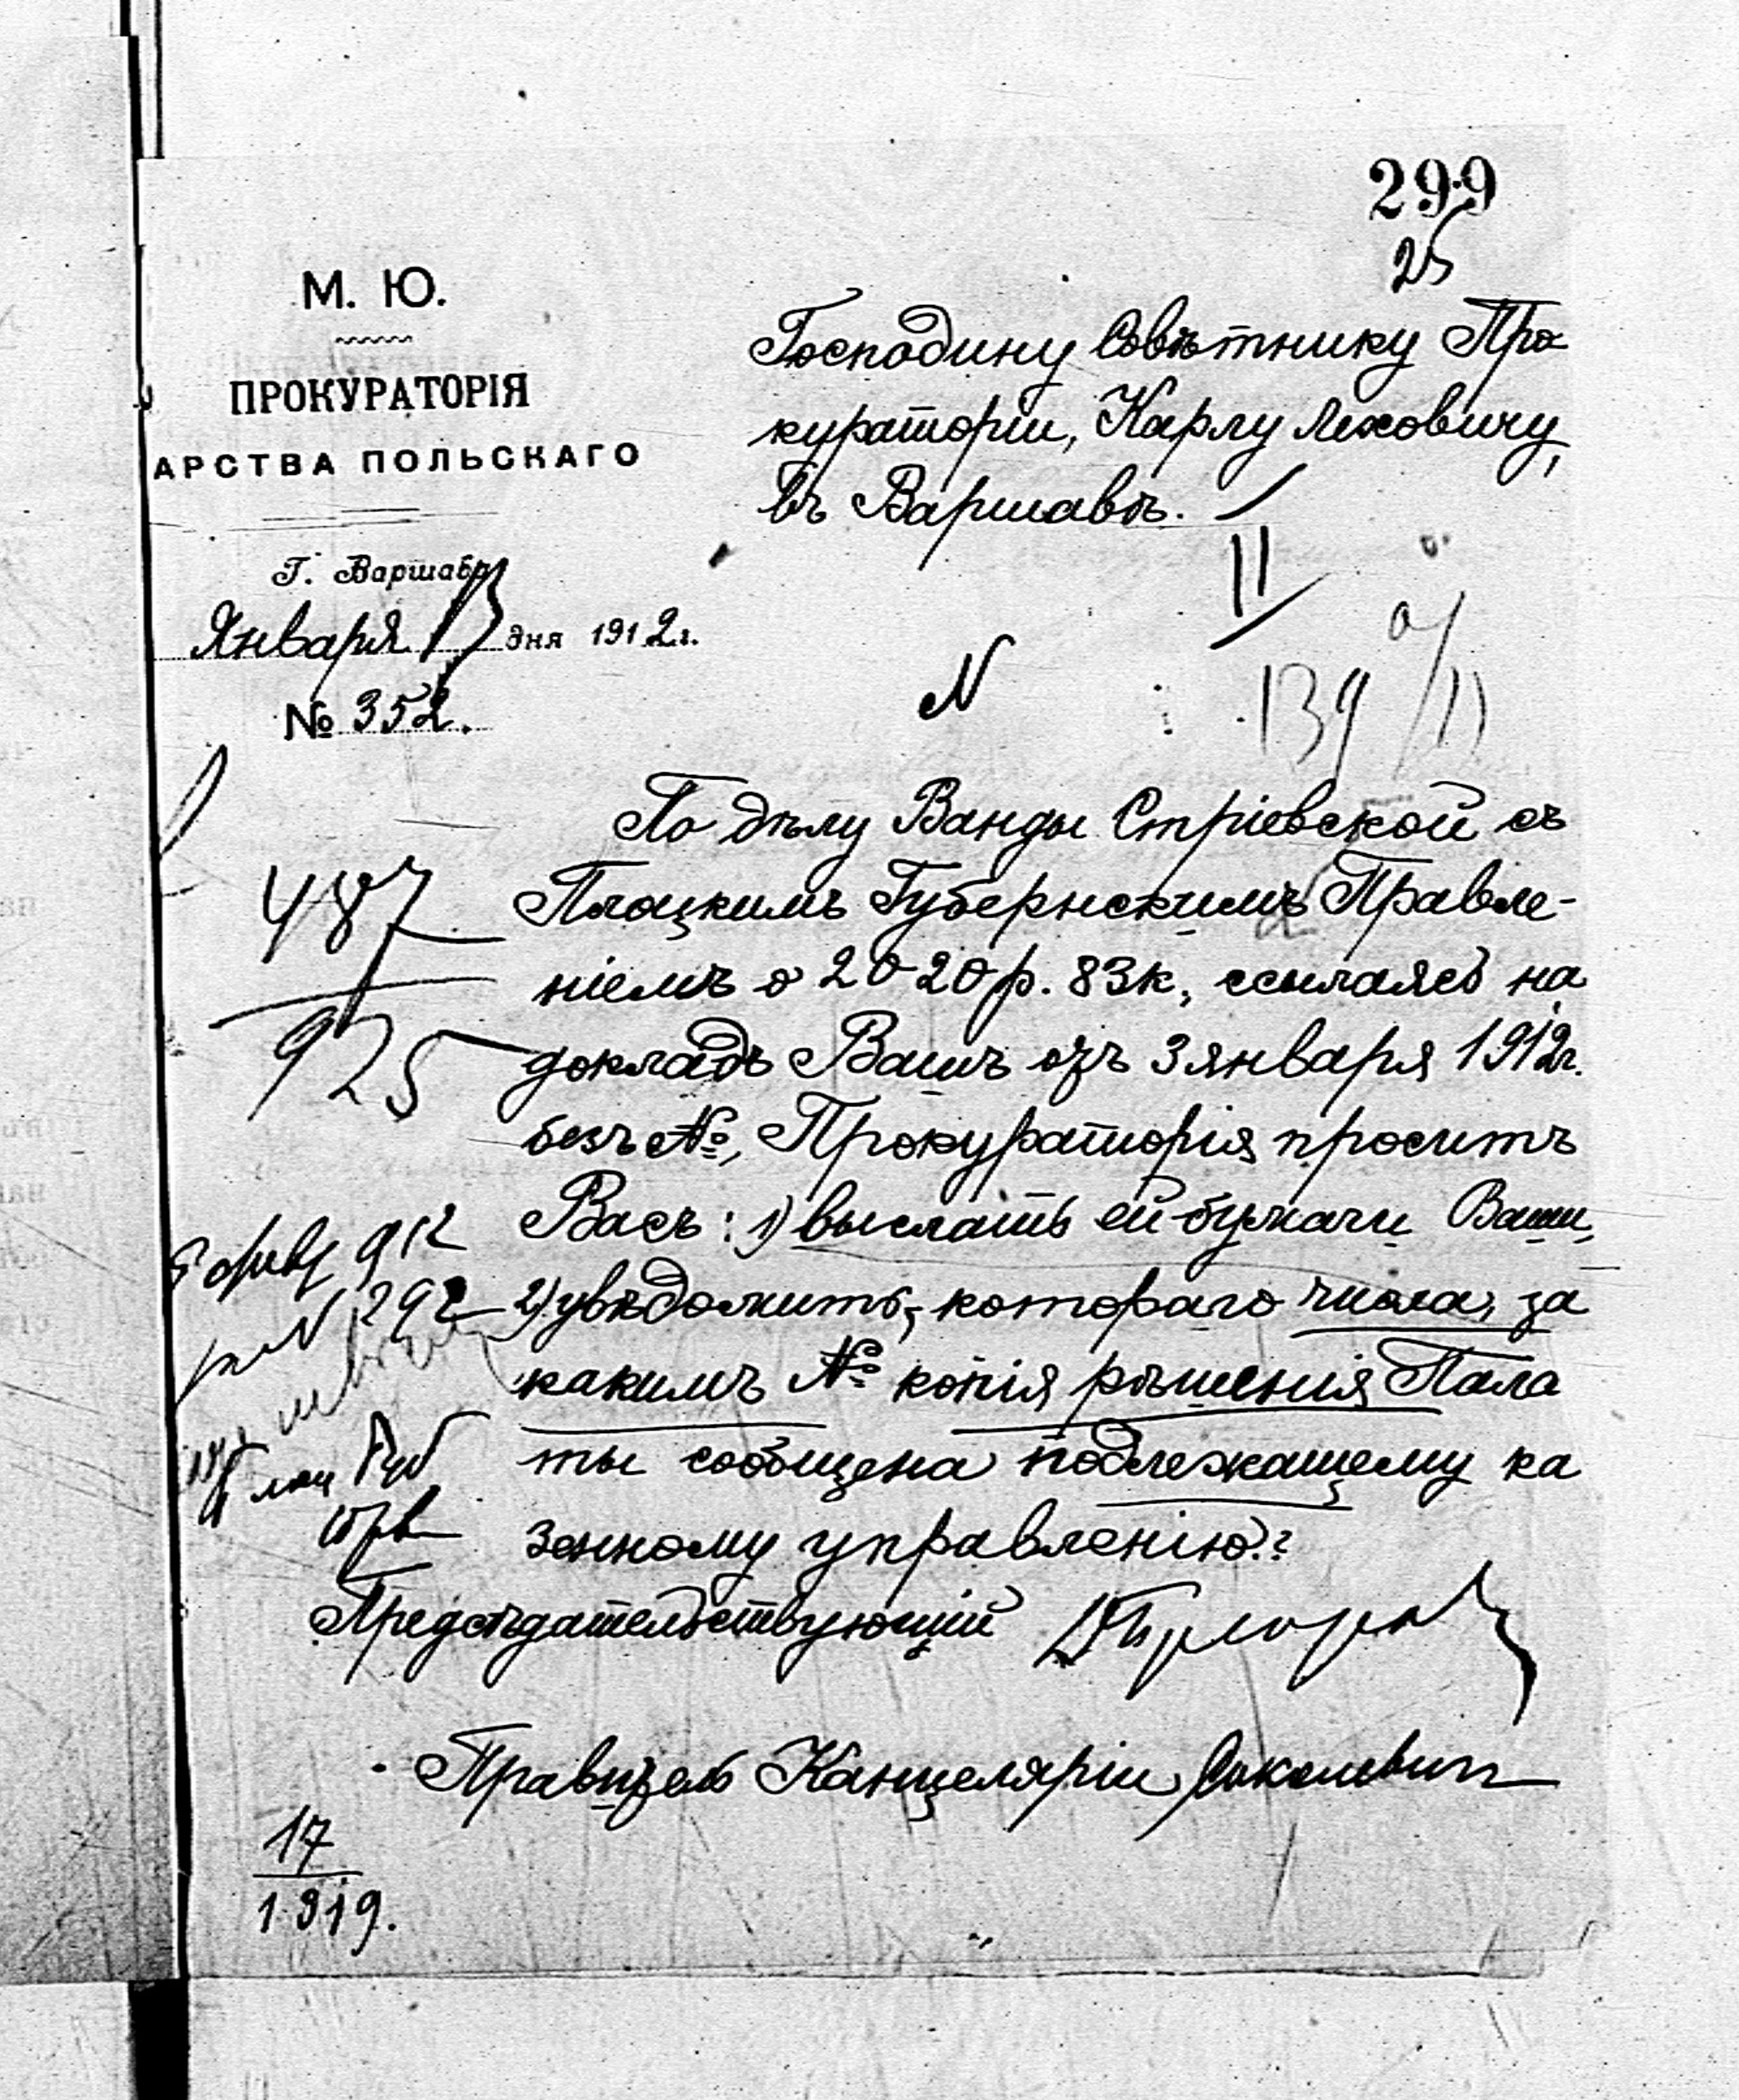 299
25
М. Ю.
ПРОКУРАТОРІЯ
АРСТВА ПОЛЬСКАГО
Г. Варшава
Января 13 дня 1912 г.
№ 352.
Господину Совѣтнику Про
кураторіи, Карлу Леховичу,
въ Варшавѣ.
II
N
139
11
По дѣлу Ванды Стріевской съ
Плоцкимъ Губернскимъ Правле-
ніемъ о 2020 р. 83 к., ссылаясь на
докладъ Вашъ отъ 3 января 1912 г.
безъ №, Прокураторія проситъ
Васъ: 1) выслать ей бумаги Ваши,
2) увѣдомить, котораго числа, за
какимъ № копія рѣшенія Пала
ты сообщена подлежащему ка
зенному управленію.?
487
925
912
N 292
Предсѣдательствующій
Правитель Канцеляріи
17
1919.